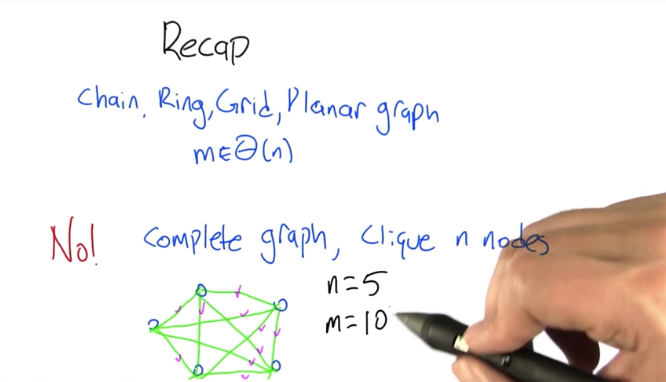 Recap
Chain, Ring, Grid, Planar graph
m∈Θ(n)
No! Complete graph, Clique n nodes
n=5
m=10